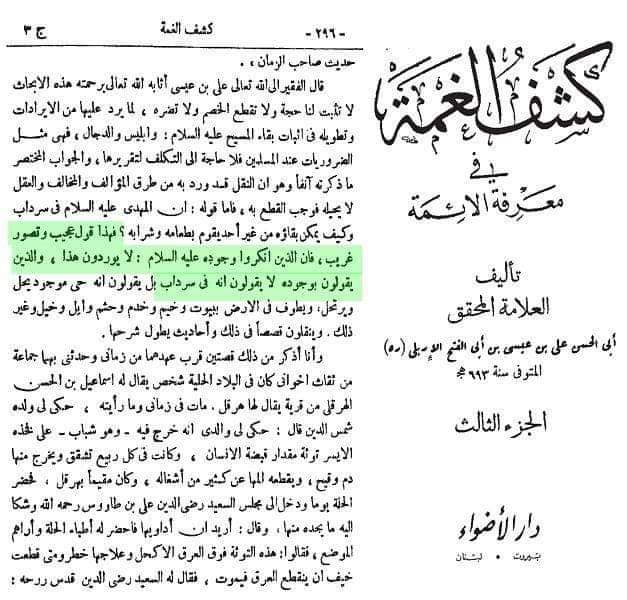 ج ٣ كشف الغمة -٢٩٦-
حديث صاحب الزمان ، .
قال الفقير الى الله تعالى على بن عيسى أثابه الله تعالى برحمته هذه الابحاث
لا تثبت لنا حجة ولا تقطع الخصم ولا تضره ، لما يرد عليها من الايرادات
وتطويله فى اثبات بقاء المسيح عليه السلام : وابليس والدجال ، فهى مثـــل
الضروريات عند المسلمين فلا حاجة الى التكلف لتقريرها ، والجواب المختصر
ما ذكرته آنفاً وهو ان النقل قسد ورد به من طرق المؤالف والمخالف والعقل
لا يحيله فوجب القطع به ، فاما قوله : ان المهدى عليه السلام فى سرداب
وكيف يمكن بقاؤه من غير أحد يقوم بطعامه وشرابه ؟ فهذا قول عجيب وتصور
غريب ، فان الذين انكروا وجوده عليه السلام : لا يوردون هذا ، والذين
يقولون بوجوده لا يقولون انه فى سرداب بل يقولون انه حى موجود يحل
ويرتحل ، ويطوف فى الارض ببيوت وخيم وخدم وحشم وابل وخيل وغير
ذلك . وينقلون قصصاً فى ذلك وأحاديث يطول شرحها .
وأنا أذكر من ذلك قصتين قرب عهدهما من زمانى وحدثنى بهما جماعة
من ثقات اخوانى كان فى البلاد الحلية شخص يقال له اسماعيل بن الحسن
الهرقلى من قرية يقال لها هرقل . مات فى زمانى وما رأيته ، حكى لى ولده
شمس الدين قال : حكى لى والدى انه خرج فيه – وهو شباب – على فخذه
الايسر توثة مقدار قبضة الانسان ، وكانت فى كل ربيع تشقق ويخرج منها
دم وقيح ، ويقطعه المها عن كثير من أشغاله ، وكان مقيماً بهرقل ، فحضر
الحلة يوما ودخل الى مجلس السعيد رضى الدين على بن طاووس رحمه الله وشكا
اليه ما يجده منها ، وقال : أريد ان أداويها فاحضر له أطباء الحلة وأراهم
الموضع ، فقالوا : هذه التوثة فوق العرق الاكحل وعلاجها خطر ومتى قطعت
خيف ان ينقطع العرق فيموت ، فقال له السعيد رضى الدين قدس روحه :
كشف الغمة
فى
معرفة الائمة
تأليف
العلامة المحقق
أبى الحسن على بن عيسى بن أبى الفتح الإربلى (ره)
المتوفى سنة ٦٩٣ هـ
الجزء الثالث
دار الأضواء
بيروت . لبنان